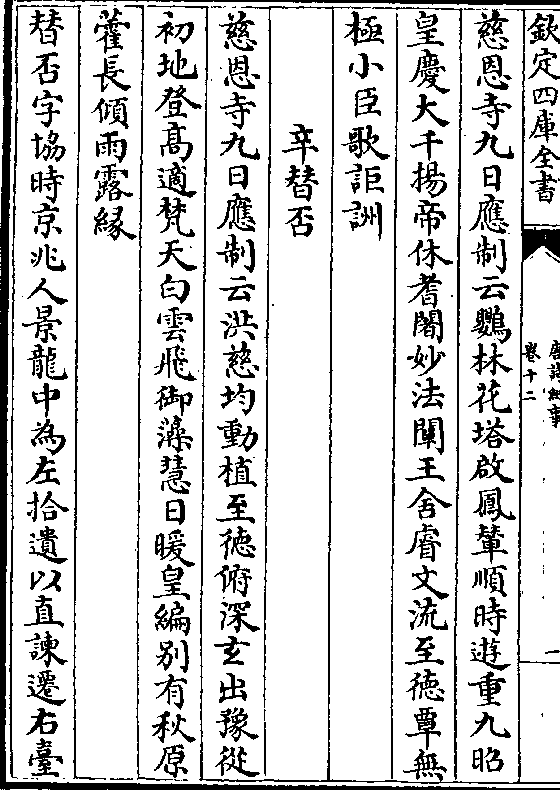 欽定四庫全書
唐詩紀事
卷十二
一
慈恩寺九日應制云鸚林花塔啟鳳輦順時遊重九昭
皇慶大千揚帝休耆闍妙法闡王舍睿文流至德覃無
極小臣歌詎詶
辛替否
慈恩寺九日應制云洪慈均動植至德俯深玄出豫從
初地登髙適梵天白雲飛御藻慧日暖皇編别有秋原
藿長傾雨露緣
替否字協時京兆人景龍中為左拾遺以直諫遷右臺